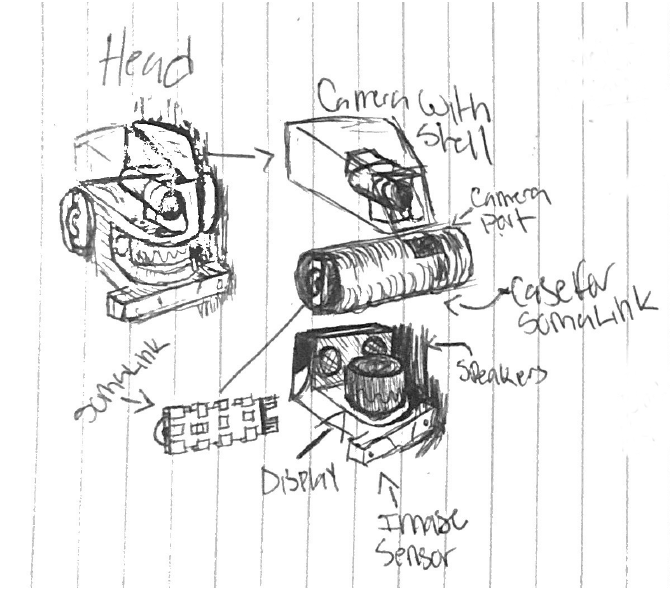 Head
Camera With
Shell
Camera
Part
Case for
SomaLink
Speakers
SomaLink
Display
Image
Sensor